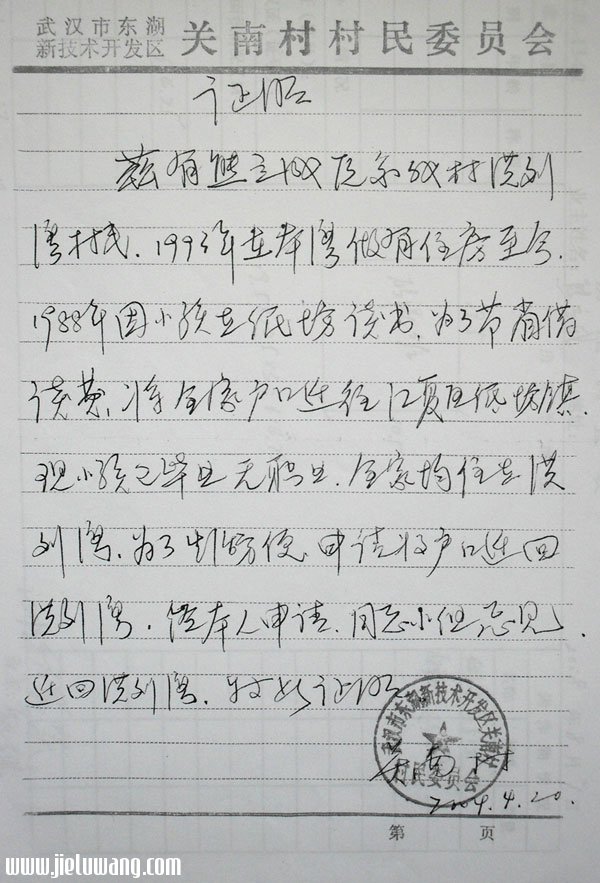 武汉市东湖
新技术开发区 关南村村民委员会
证明
兹有熊立成同志系我村洪列
湾村民、1993年在本湾做有住房至今、
1988年因小孩在纸坊读书、为了节省借
读费、将全家户口迁往江夏区纸坊镇、
现小孩已毕业无职业、全家均住在洪
列湾、为了生活方便、申请将户口迁回
洪列湾、经本人申请、同意小组意见、
迁回洪列湾、特此证明
武汉市东湖新技术开发区关南村
村民委员会
关南村
2004.4.20.
第 页
www.jieluwang.com